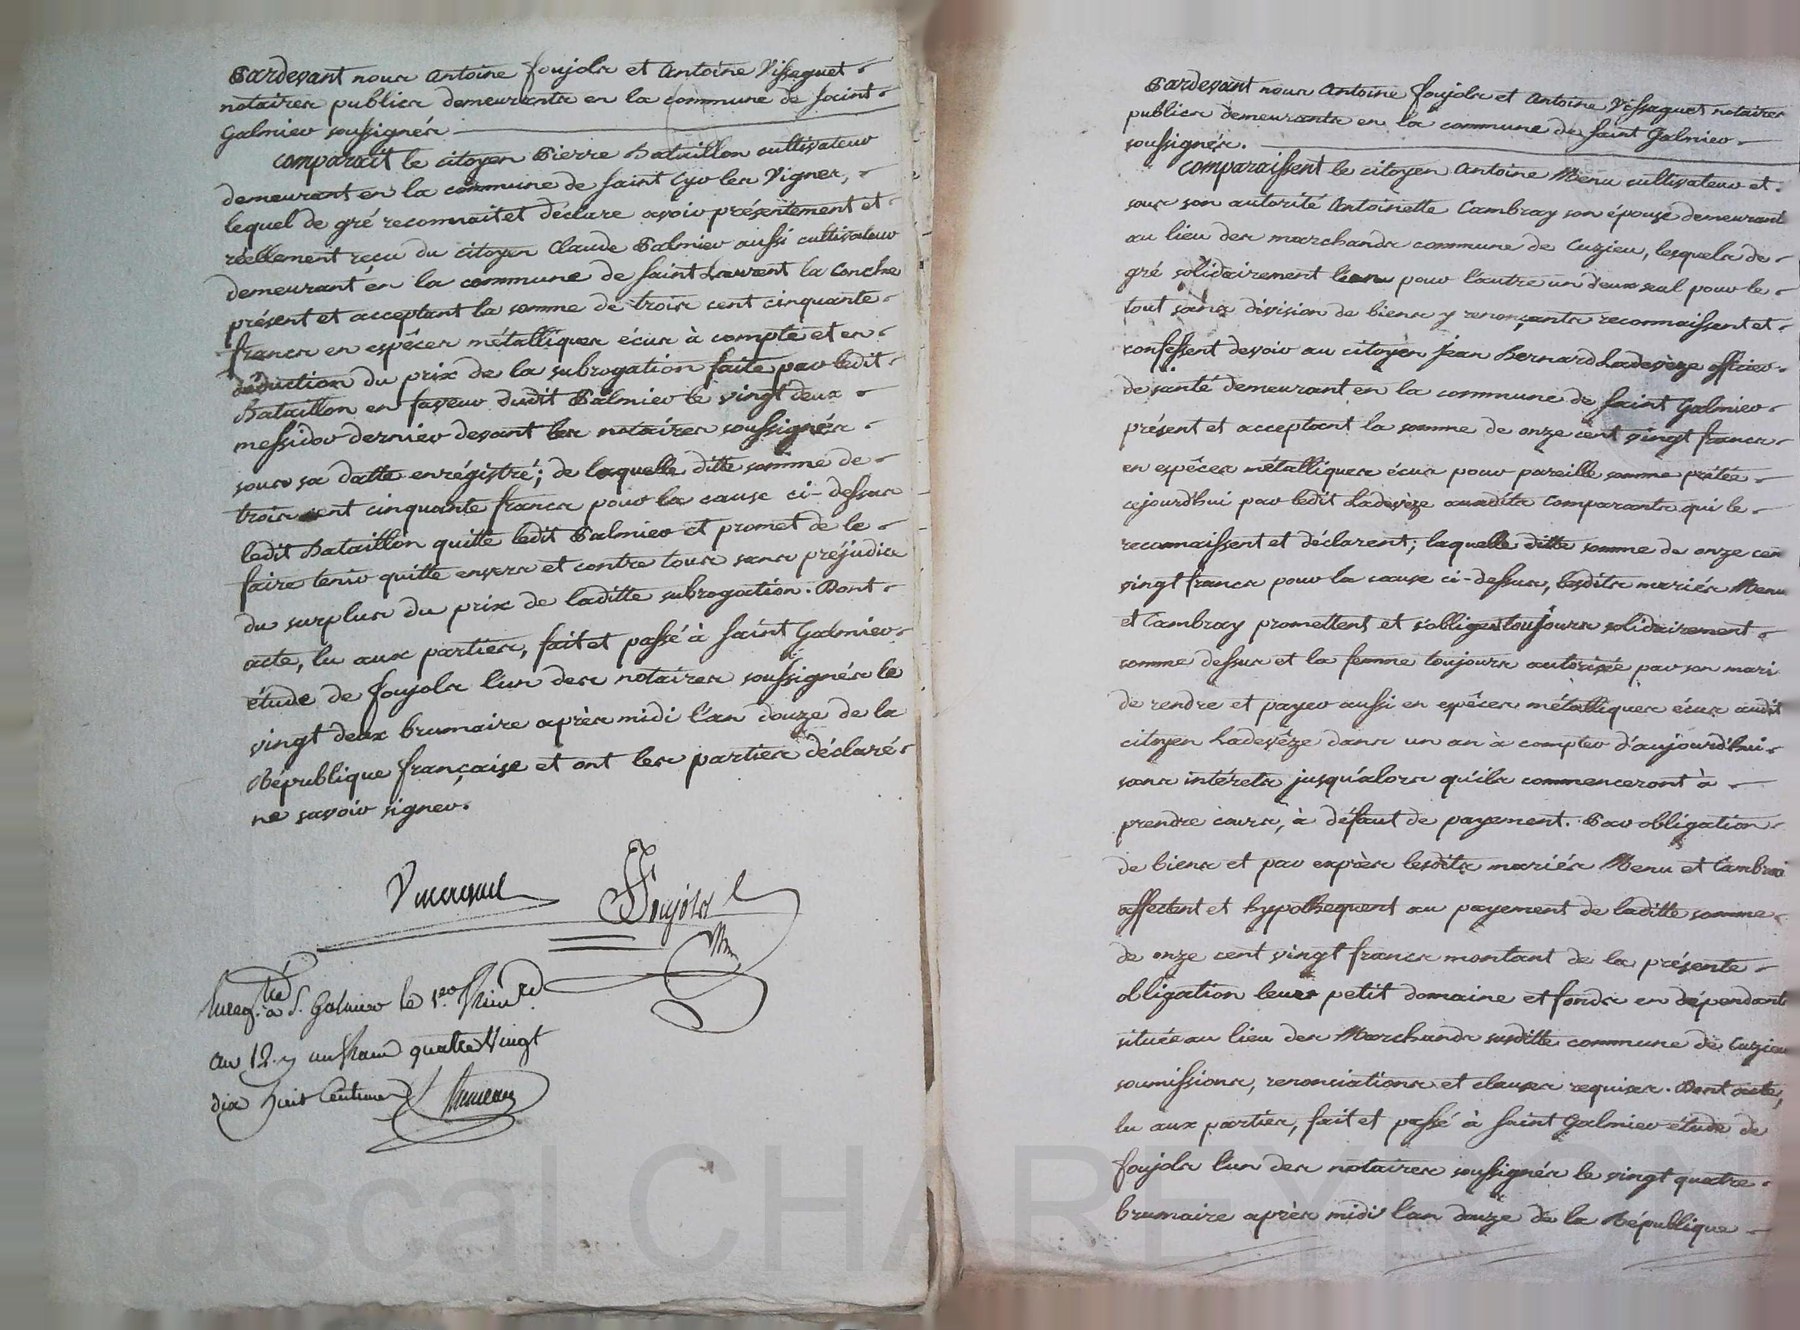 Pardevant nous Antoine Foujols et Antoine Vissaguet
notaires publics demeurants en la commune de Saint
Galmier soussignés
comparait le citoyen Pierre Bataillon cultivateur
demeurant en la commune de Saint Cyr les Vignes,
lequel de gré reconnait et déclare avoir présentement et
réellement reçu du citoyen Claude Palmier aussi cultivateur
demeurant en la commune de Saint Laurent la Conche
présent et acceptant la somme de trois cent cinquante
francs en espêces métalliques écus à compte et en
déduction du prix de la subrogation faite par ledit
Bataillon en faveur dudit Palmier le vingt deux
messidor dernier devant les notaires soussignés
sous sa datte enrégistré; de laquelle ditte somme de
trois cent cinquante francs pour la cause ci-dessus
ledit Bataillon quitte ledit Palmier et promet de le
faire tenir quitte envers et contre tous sans préjudice
du surplus du prix de laditte subrogation. Dont
acte, lu aux parties, fait et passé à Saint Galmier
étude de Foujols l'un des notaires soussignés le
vingt deux brumaire après midi l'an douze de la
République française et ont les parties déclaré
ne savoir signer.
Foujols
Enreg.tré à S.t Galmier le
an 12. un franc quatre vingt
dix huit Centimes
Pardevant nous Antoine Foujols et Antoine Vissaguet notaires
publics demeurants en la commune de Saint Galmier
soussignés.
comparaissent le citoyen Antoine Menu cultivateur et
sous son autorité Antoinette Cambray son épouse demeurant
au lieu des marchands commune de Cuzieu, lesquels de
gré solidairement l'un pour l'autre un d'eux seul pour le
tout sans division de biens y renonçants reconnaissent et
confessent devoir au citoyen Jean Bernard Ladevèze officier
de santé demeurant en la commune de Saint Galmier
présent et acceptant la somme de onze cent vingt francs
en espêces métalliques écus pour pareille somme prêtée
cejourd'hui par ledit Ladevèze auxdits comparants qui le
reconnaissent et déclarent; laquelle ditte somme de onze cen
vingt francs pour la cause ci-dessus, lesdits mariés Menu
et Cambray promettent et s'obligent toujours solidairement
comme dessus et la femme toujours autorisée par son mari
de rendre et payer aussi en espêces métalliques écus audit
citoyen Ladevêze dans un an à compter d'aujourd'hui
sans intérets jusqu'alors qu'ils commenceront à
prendre cours, à défaut de payement. Par obligation
de biens et par exprès lesdits mariés Menu et Cambrai
affectent et hypothequent au payement de laditte somme
de onze cent vingt francs montant de la présente
obligation leur petit domaine et fonds en dépendants
situés au lieu des Marchands susditte commune de Cuzieu
soumissions, renonciations et clauses requises. Dont acte,
lu aux parties, fait et passé à Saint Galmier étude de
Foujols l'un des notaires soussignés le vingt quatre
brumaire après midi l'an douze de la République
Pascal CHAREYRON